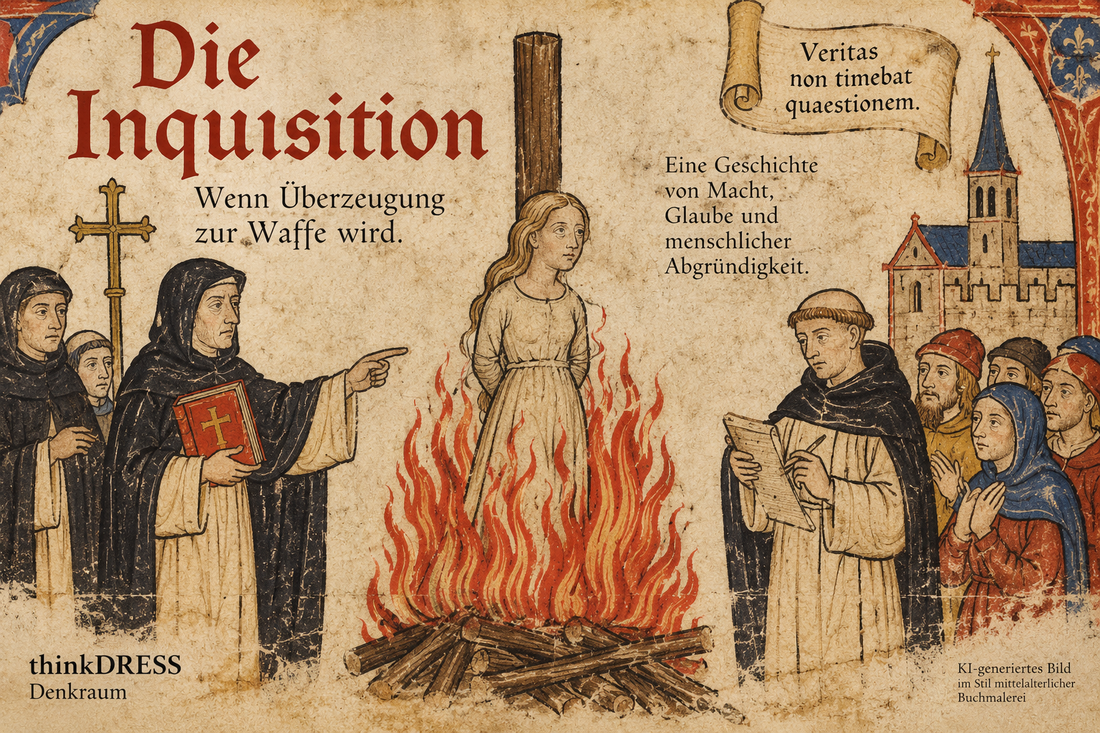 Die
Inquisition
Wenn Überzeugung
zur Waffe wird.
Veritas
non timebat
quaestionem.
Eine Geschichte
von Macht,
Glaube und
menschlicher
Abgründigkeit.
thinkDRESS
Denkraum
KI-generiertes Bild
im Stil mittelalterlicher
Buchmalerei